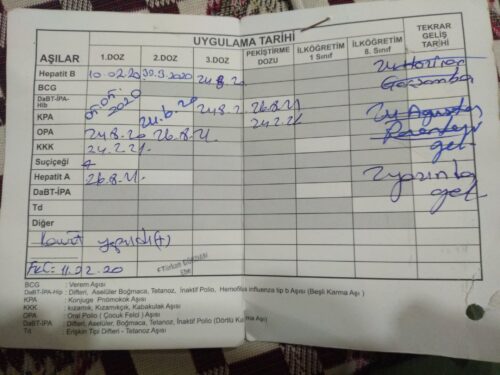 UYGULAMA TARİHİ
AŞILAR 1.DOZ 2.DOZ 3.DOZ PEKİŞTİRME DOZU İLKÖĞRETİM 1 Sınıf İLKÖĞRETİM 8. Sınıf TEKRAR GELİŞ TARİHİ
Hepatit B 10.02.20 30.3.2020 24.8.20
BCG
DaBT-İPA-Hib 05.05.2020 24.6.20 24.8.2 26.8.21
KPA 24.2.21
OPA 24.8.20 26.8.21.
KKK 24.2.21. gel
Suçiçeği
Hepatit A 26.8.21. gel
DaBT-İPA
Td
Diğer
yapıldı(+)
FKÜ: 11.02.20
BCG : Verem Aşısı
DaBT-İPA-Hip : Difteri, Aselüler Boğmaca, Tetanoz, İnaktif Polio, Hemofilus influenza tip b Aşısı (Beşli Karma Aşı)
KPA : Konjuge Pnömokok Aşısı
KKK : kızamık, Kızamıkçık, Kabakulak Aşısı
OPA : Oral Polio ( Çocuk Felci ) Aşısı
DaBT-İPA : Difteri, Aselüler Boğmaca, Tetanoz, İnaktif Polio (Dörtlü Karma Aşı)
Td : Erişkin Tipi Difteri - Tetanoz Aşısı